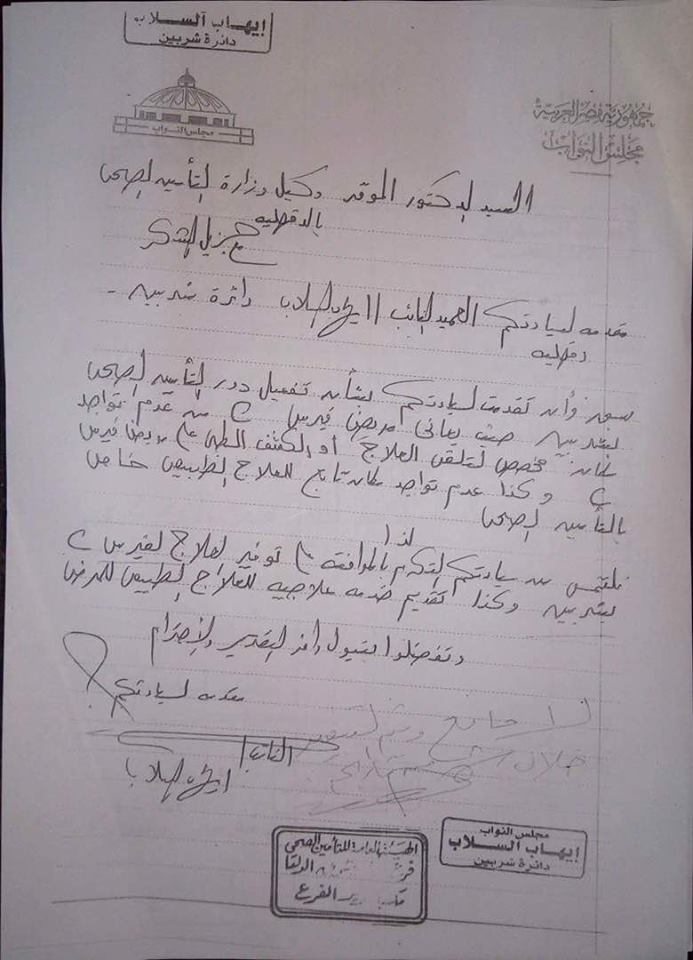 إيهاب السلاب
دائرة شربين
جمهورية مصر العربية
مجلس النواب
مجلس النواب
السيد الدكتور الموقر وكيل وزارة التأمين الصحى
بالدقهلية
مع جزيل الشكر
مقدمه لسيادتكم العميد النائب / إيهاب السلاب دائرة شربين -
دقهليه
سبق وأن تقدمت لسيادتكم بشأن تفعيل دور التأمين الصحى
بشربين حيث يعانى مريض فيرس C من عدم تواجد
مكان مخصص لتلقى العلاج أو الكشف الطبى على مريض فيرس
C وكذا عدم تواجد مكان تابع للعلاج الطبيعى خاص
بالتأمين الصحى
لذا
نلتمس من سيادتكم التكرم بالموافقة على توفير العلاج لفيرس C
بشربين وكذا تقديم خدمه علاجيه للعلاج الطبيعى للمرضى
وتفضلوا بقبول وافر التقدير والإحترام
مقدمه لسيادتكم
النائب /
إيهاب السلاب
مجلس النواب
إيهاب السلاب
دائرة شربين
الهيئة العامة للتأمين الصحى
الدلتا
الفرع